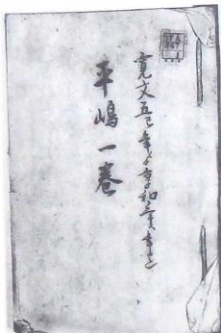 寛文五巳年ゟ享和三亥年迄
平嶋一巻